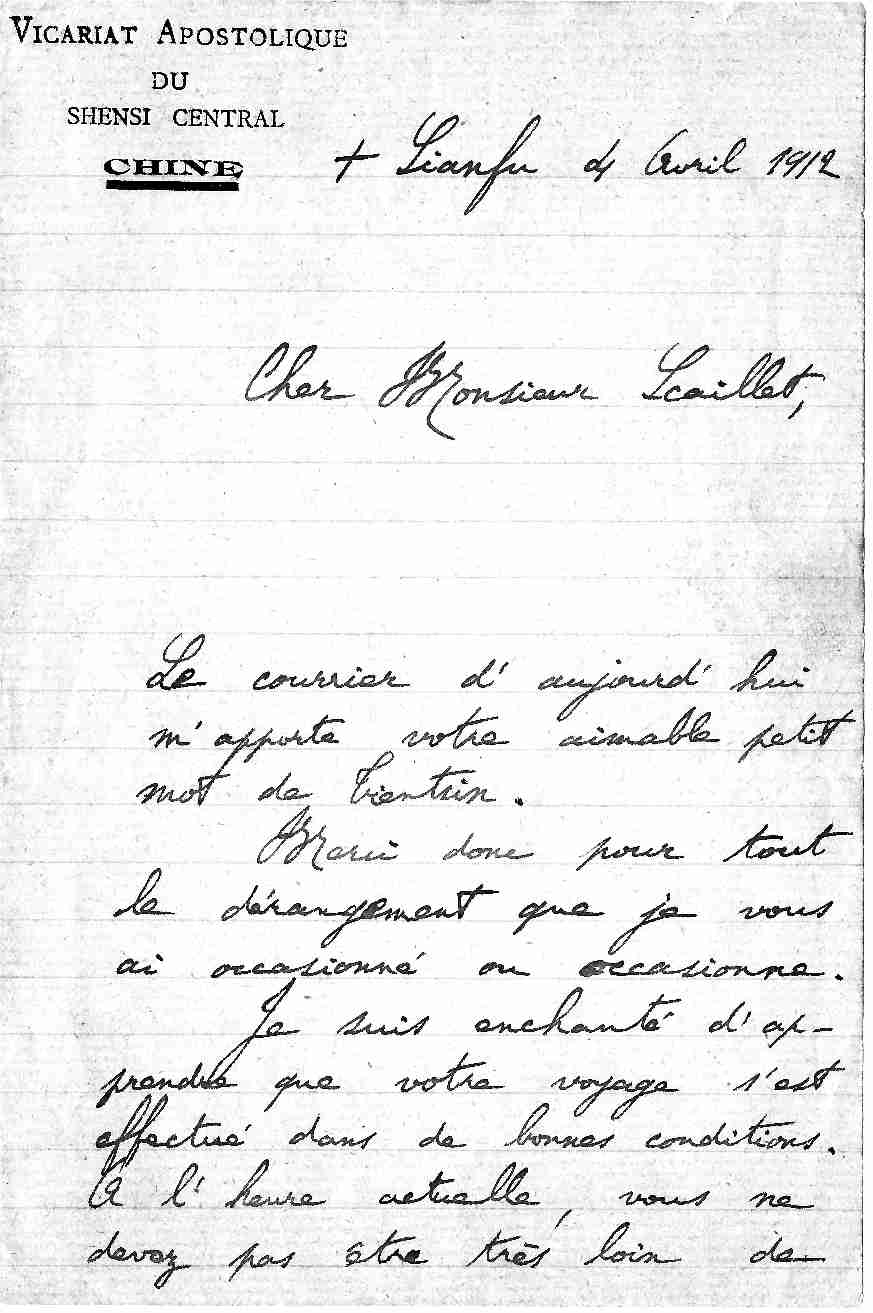 VICARIAT APOSTOLIQUE
DU
SHENSI CENTRAL
CHINE
+ Sianfu 4 Avril 1912
Cher Monsieur Scaillet,
Le courrier d'aujourd'hui
m'apporte votre aimable petit
mot de Tientsin.
Merci donc pour tout
le dérangement que je vous
ai occasionné ou occasionne.
Je suis enchanté d'ap-
prendre que votre voyage s'est
effectué dans de bonnes conditions.
A l'heure actuelle, vous ne
devez pas être très loin de